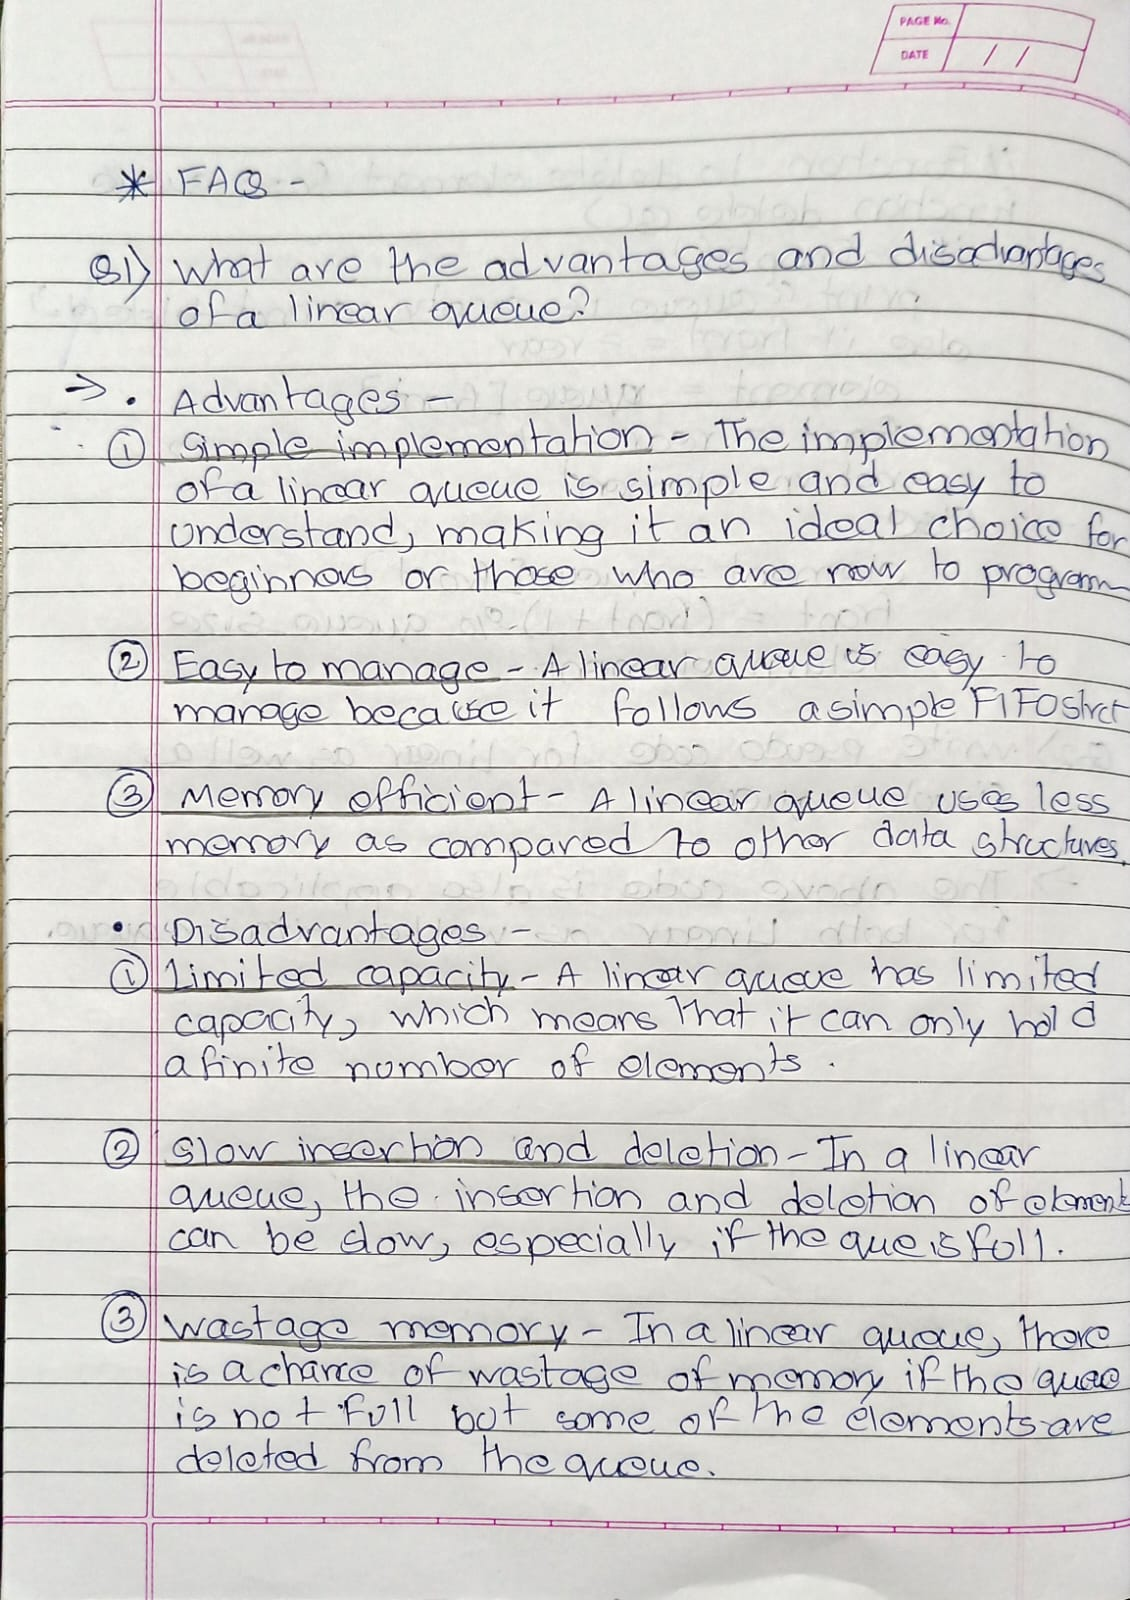 PAGE No.
DATE / /
* FAQ -
Q1) What are the advantages and disadvantages
of a linear queue?
→ • Advantages -
① Simple implementation - The implementation
of a linear queue is simple and easy to
understand, making it an ideal choice for
beginners or those who are new to program
② Easy to manage - A linear queue is easy to
manage because it follows a simple FIFO strct
③ Memory efficient - A linear queue uses less
memory as compared to other data structures.
• Disadvantages -
① Limited capacity - A linear queue has limited
capacity, which means that it can only hold
a finite number of elements.
② Slow insertion and deletion - In a linear
queue, the insertion and deletion of elements
can be slow, especially if the que is full.
③ Wastage memory - In a linear queue, there
is a chance of wastage of memory if the queue
is not full but some of the elements are
deleted from the queue.